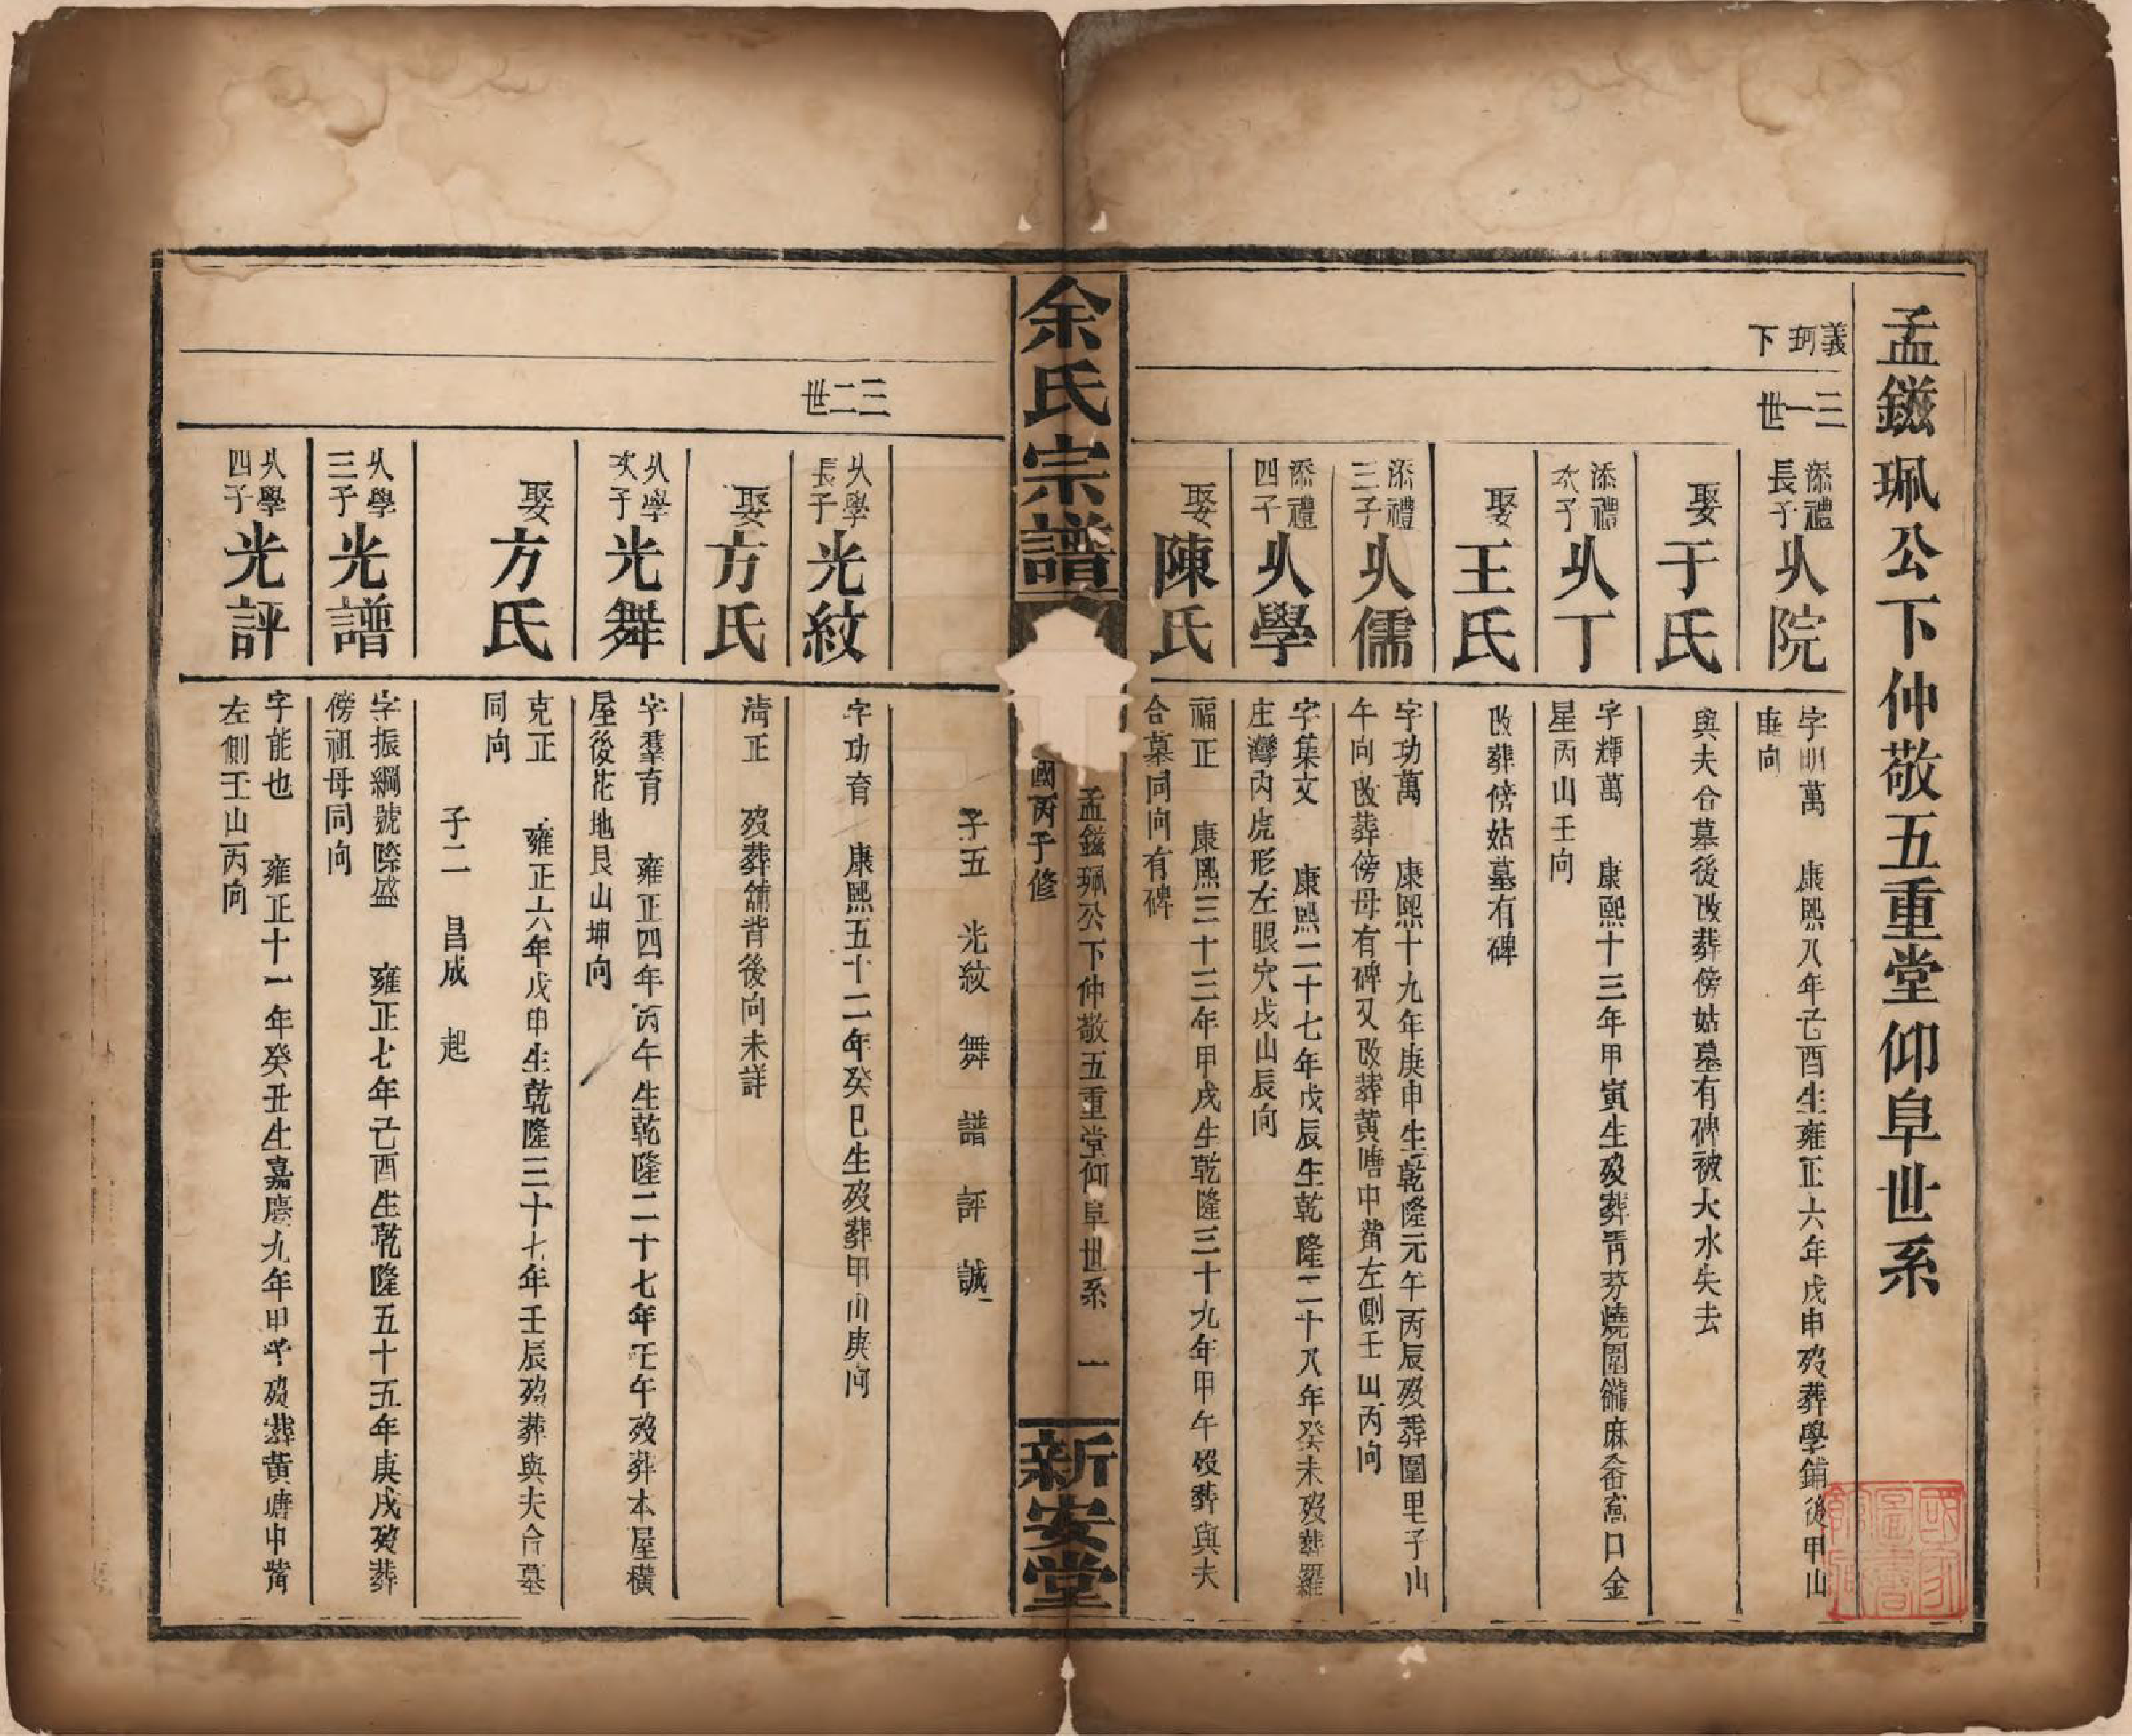 孟鎡珮公下仲敬五重堂仰阜世系
義珂下
三一世
添禮長子
㕥院
字明萬　康熙八年己酉生雍正六年戊申歿葬學鋪後甲山
庚向
娶于氏
與夫合墓後改葬傍姑墓有碑被大水失去
添禮次子
㕥丁
字輝萬　康熙十三年甲寅生歿葬靑芬燒圍
麻畬窩口金
星丙山壬向
娶王氏
改葬傍姑墓有碑
添禮三子
㕥儒
字功萬　康熙十九年庚申生乾隆元年丙辰歿葬圍里子山
午向改葬傍母有碑又改葬黄塘中嘴左側壬山丙向
添禮四子
㕥學
字集文　康熙二十七年戊辰生乾隆二十八年癸未歿葬羅
庄灣內虎形左眼穴戌山辰向
娶陳氏
福正　康熙三十三年甲戌生乾隆三十九年甲午歿葬與夫
合墓同向有碑
余氏宗譜
國丙子修
孟鎡珮公下仲敬五重堂仰阜世系　一
新安堂
子五　光紋　舞　譜　評　誠
三二世
㕥學長子
光紋
字功育　康熙五十二年癸巳生歿葬甲山庚向
娶方氏
淸正　歿葬舖背後向未詳
㕥學次子
光舞
字羣育　雍正四年丙午生乾隆二十七年壬午歿葬本屋橫
屋後花地艮山坤向
娶方氏
克正　雍正六年戊申生乾隆三十七年壬辰歿葬與夫合墓
同向
子二　昌成　起
㕥學三子
光譜
字振綱號際盛　雍正七年己酉生乾隆五十五年庚戌歿葬
傍祖母同向
㕥學四子
光評
字能也　雍正十一年癸丑生嘉慶九年甲子歿葬黄塘中嘴
左側壬山丙向
國家圖書館藏